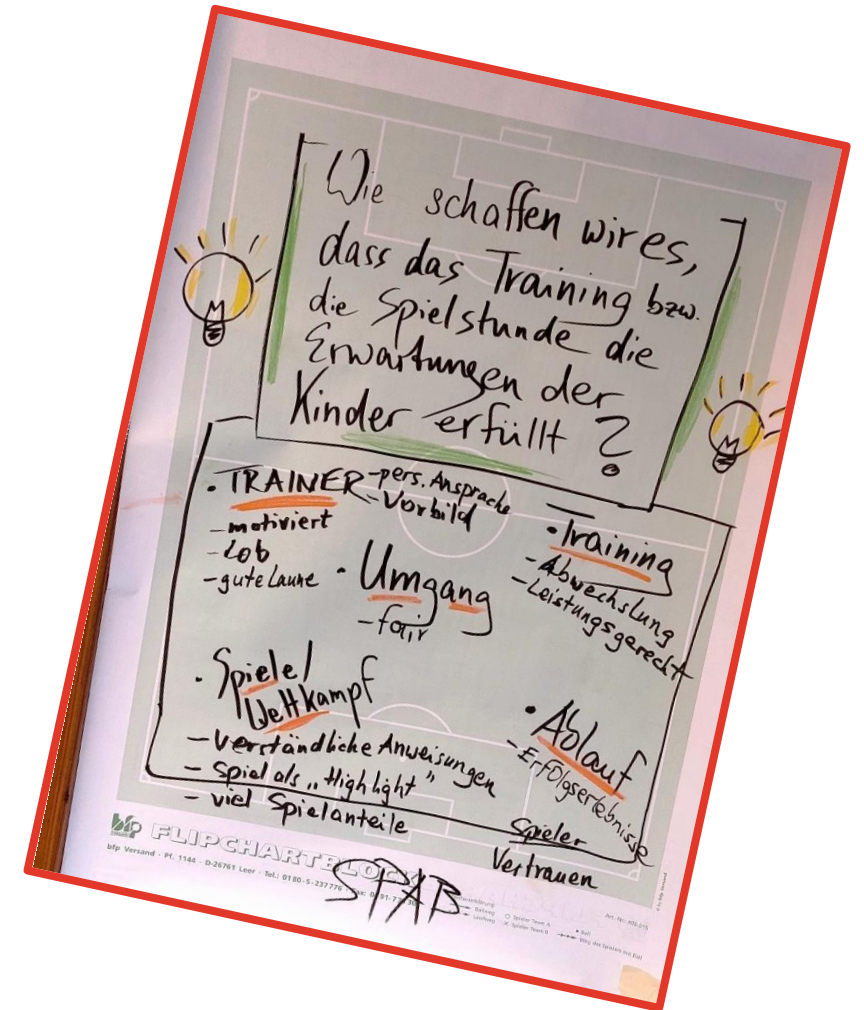 Wie schaffen wir es,
dass das Training bzw.
die Spielstunde die
Erwartungen der
Kinder erfüllt ?
• TRAINER - pers. Ansprache
- Vorbild
- motiviert
- Lob
- gute Laune
• Umgang
- fair
• Training
- Abwechslung
- Leistungsgerecht
• Spiele/
Wettkampf
- Verständliche Anweisungen
- Spiel als „Highlight"
- viel Spielanteile
• Ablauf
- Erfolgserlebnisse
Spieler
Vertrauen
SPAß
bfp FLIPCHARTBLOCK
bfp Versand · Pf. 1144 · D-26761 Leer · Tel.: 0180-5-237776 · Fax:
Ballweg
Laufweg
Spieler Team A
Spieler Team B
Ball
Weg des Spielers mit Ball
Art.-Nr.: